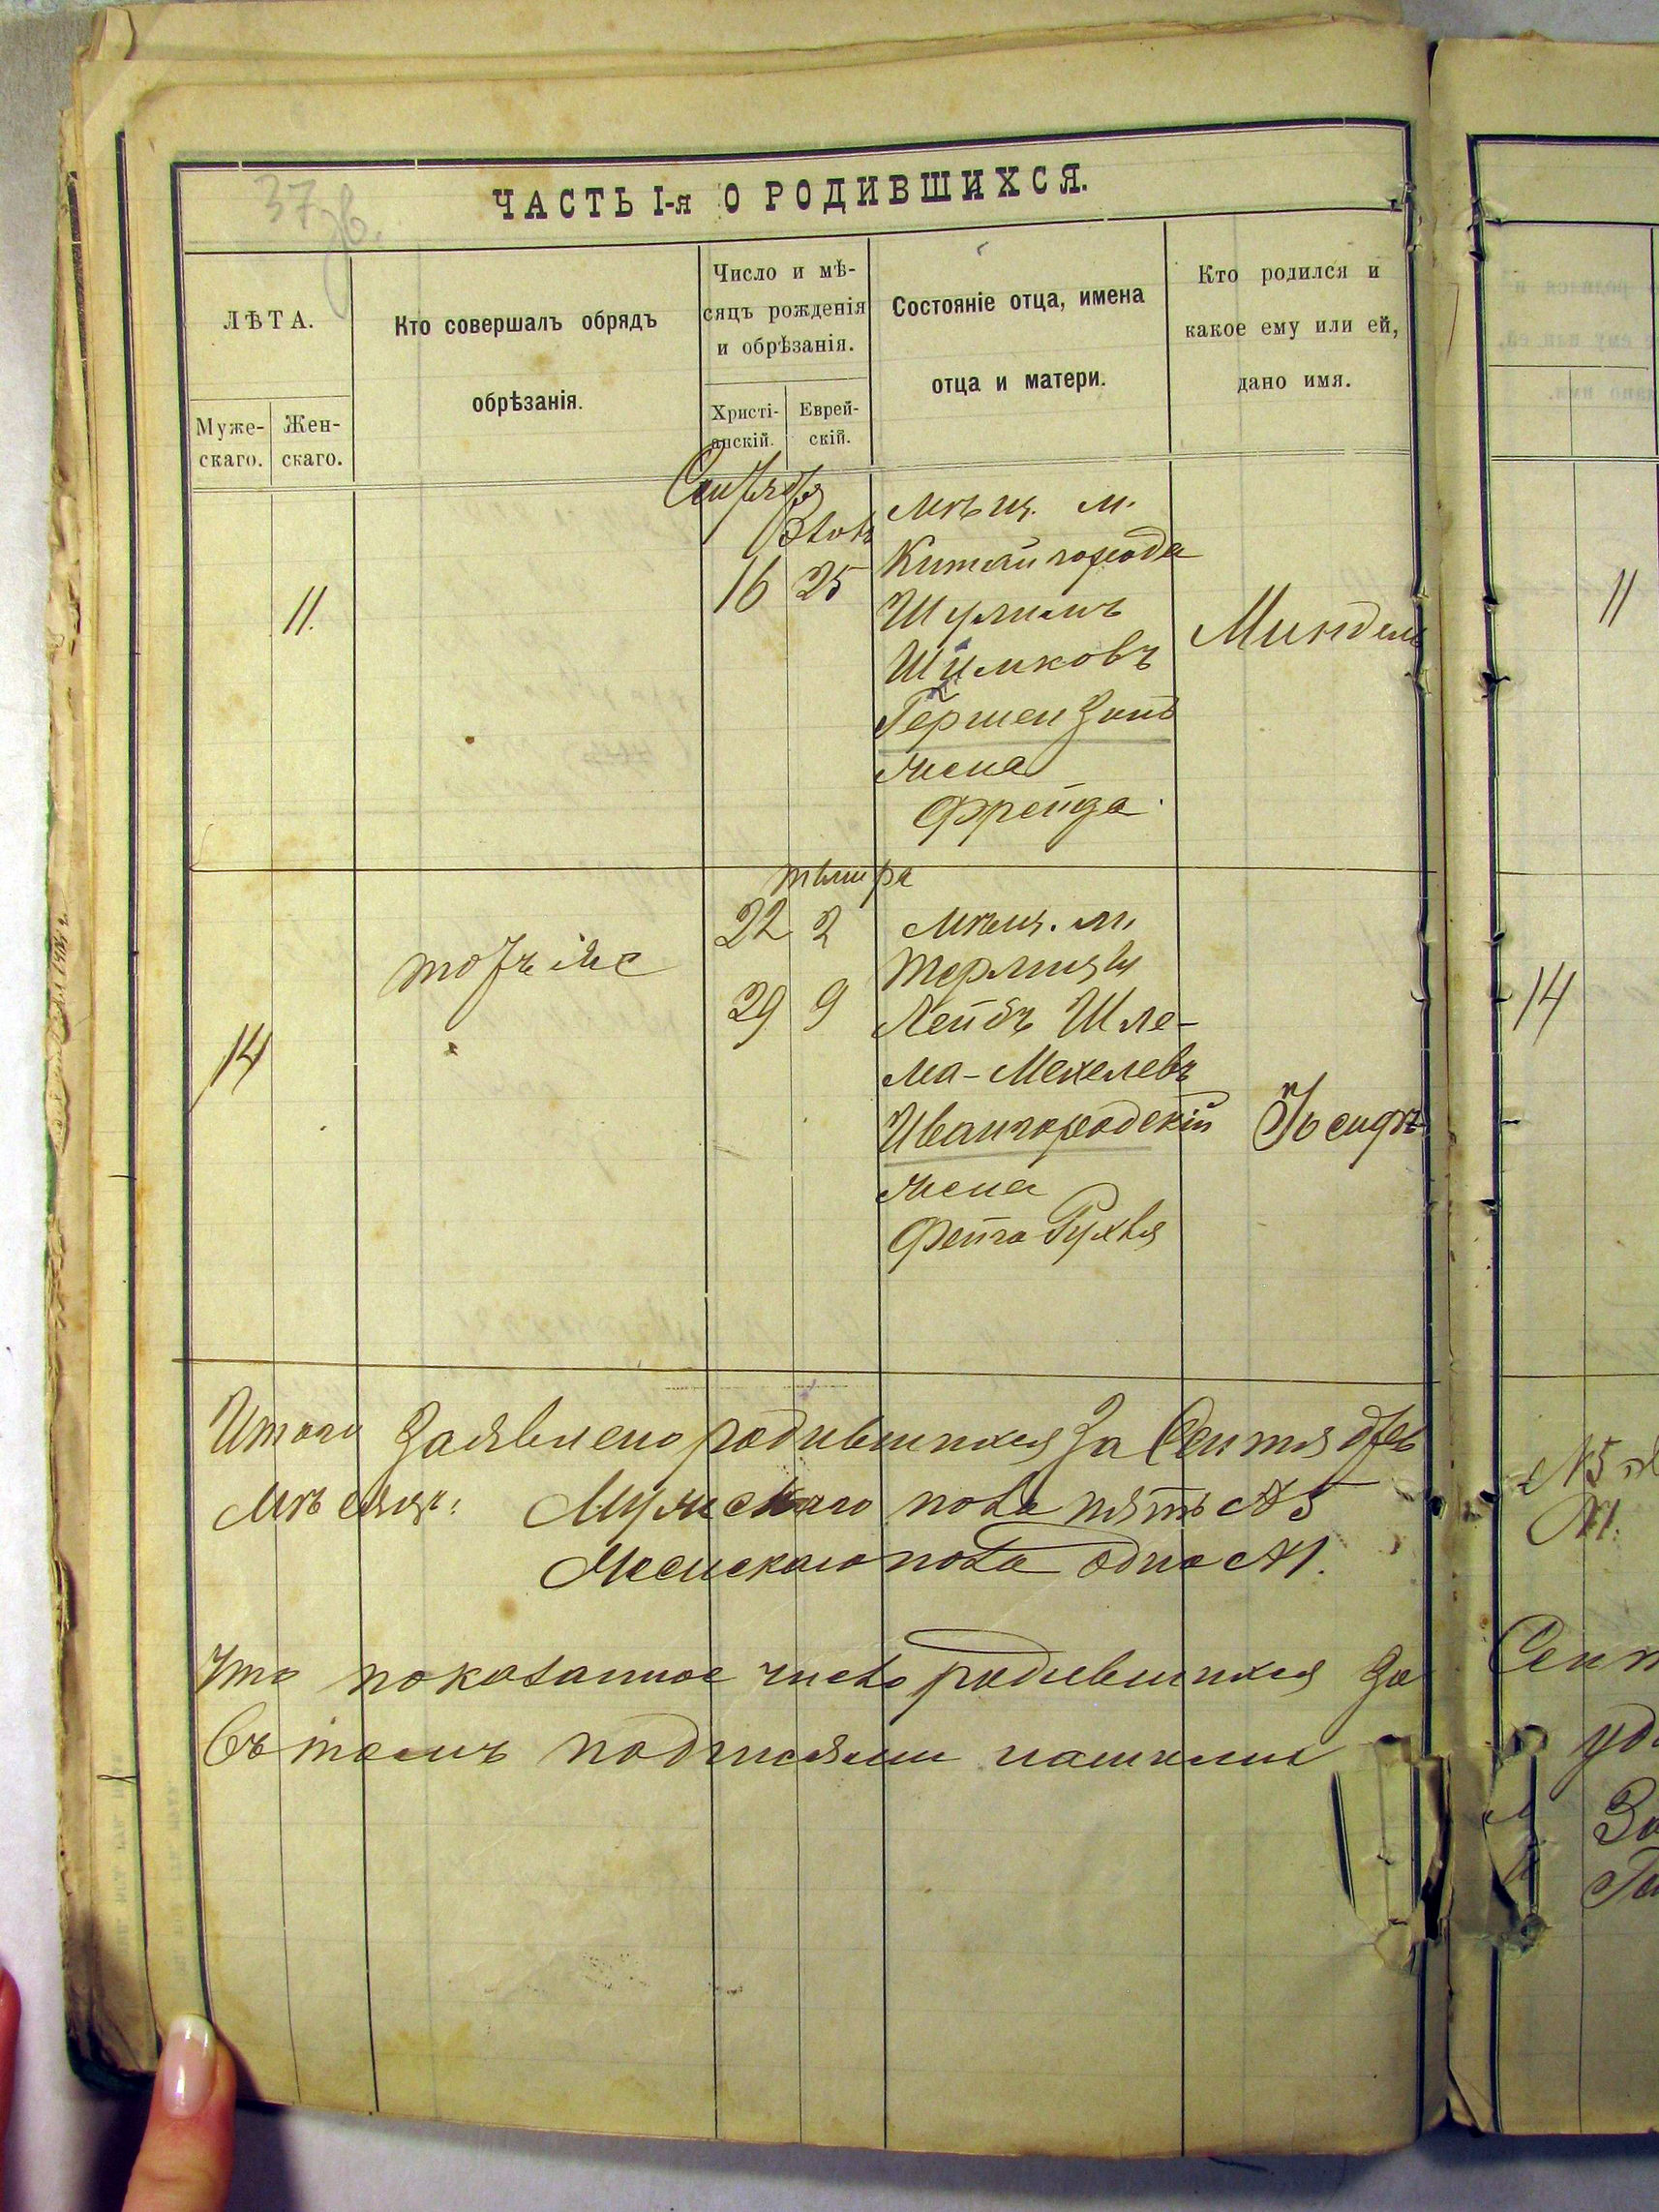 37 об.
ЧАСТЬ I-я О РОДИВШИХСЯ.
ЛѢТА.
Муже-
скаго.
Жен-
скаго.
Кто совершалъ обрядъ
обрѣзанія.
Число и мѣ-
сяцъ рожденія
и обрѣзанія.
Христі-
анскій.
Еврей-
скій.
Состояніе отца, имена
отца и матери.
Кто родился и
какое ему или ей,
дано имя.
Сентября
Элолъ
11.
16 25
мѣщ. м.
Китайгорода
Шулимъ
Шимковъ
Гершензонъ
жена
Фрейда
Миндель
тишра
14
тотъ же
22 2
29 9
мѣщ. м.
Терлицы
Лейбъ Шле-
ма-Мехелевъ
Ивангородскій
жена
Фейга Рухля
Іосифъ
Итого заявлено родившихся за Сентябрь
мѣсяцъ: Мужскаго пола пять №5
Женскаго пола одна №1.
Что показанное число родившихся за
въ томъ подписями нашими
11
14
№5
№1.
Сент